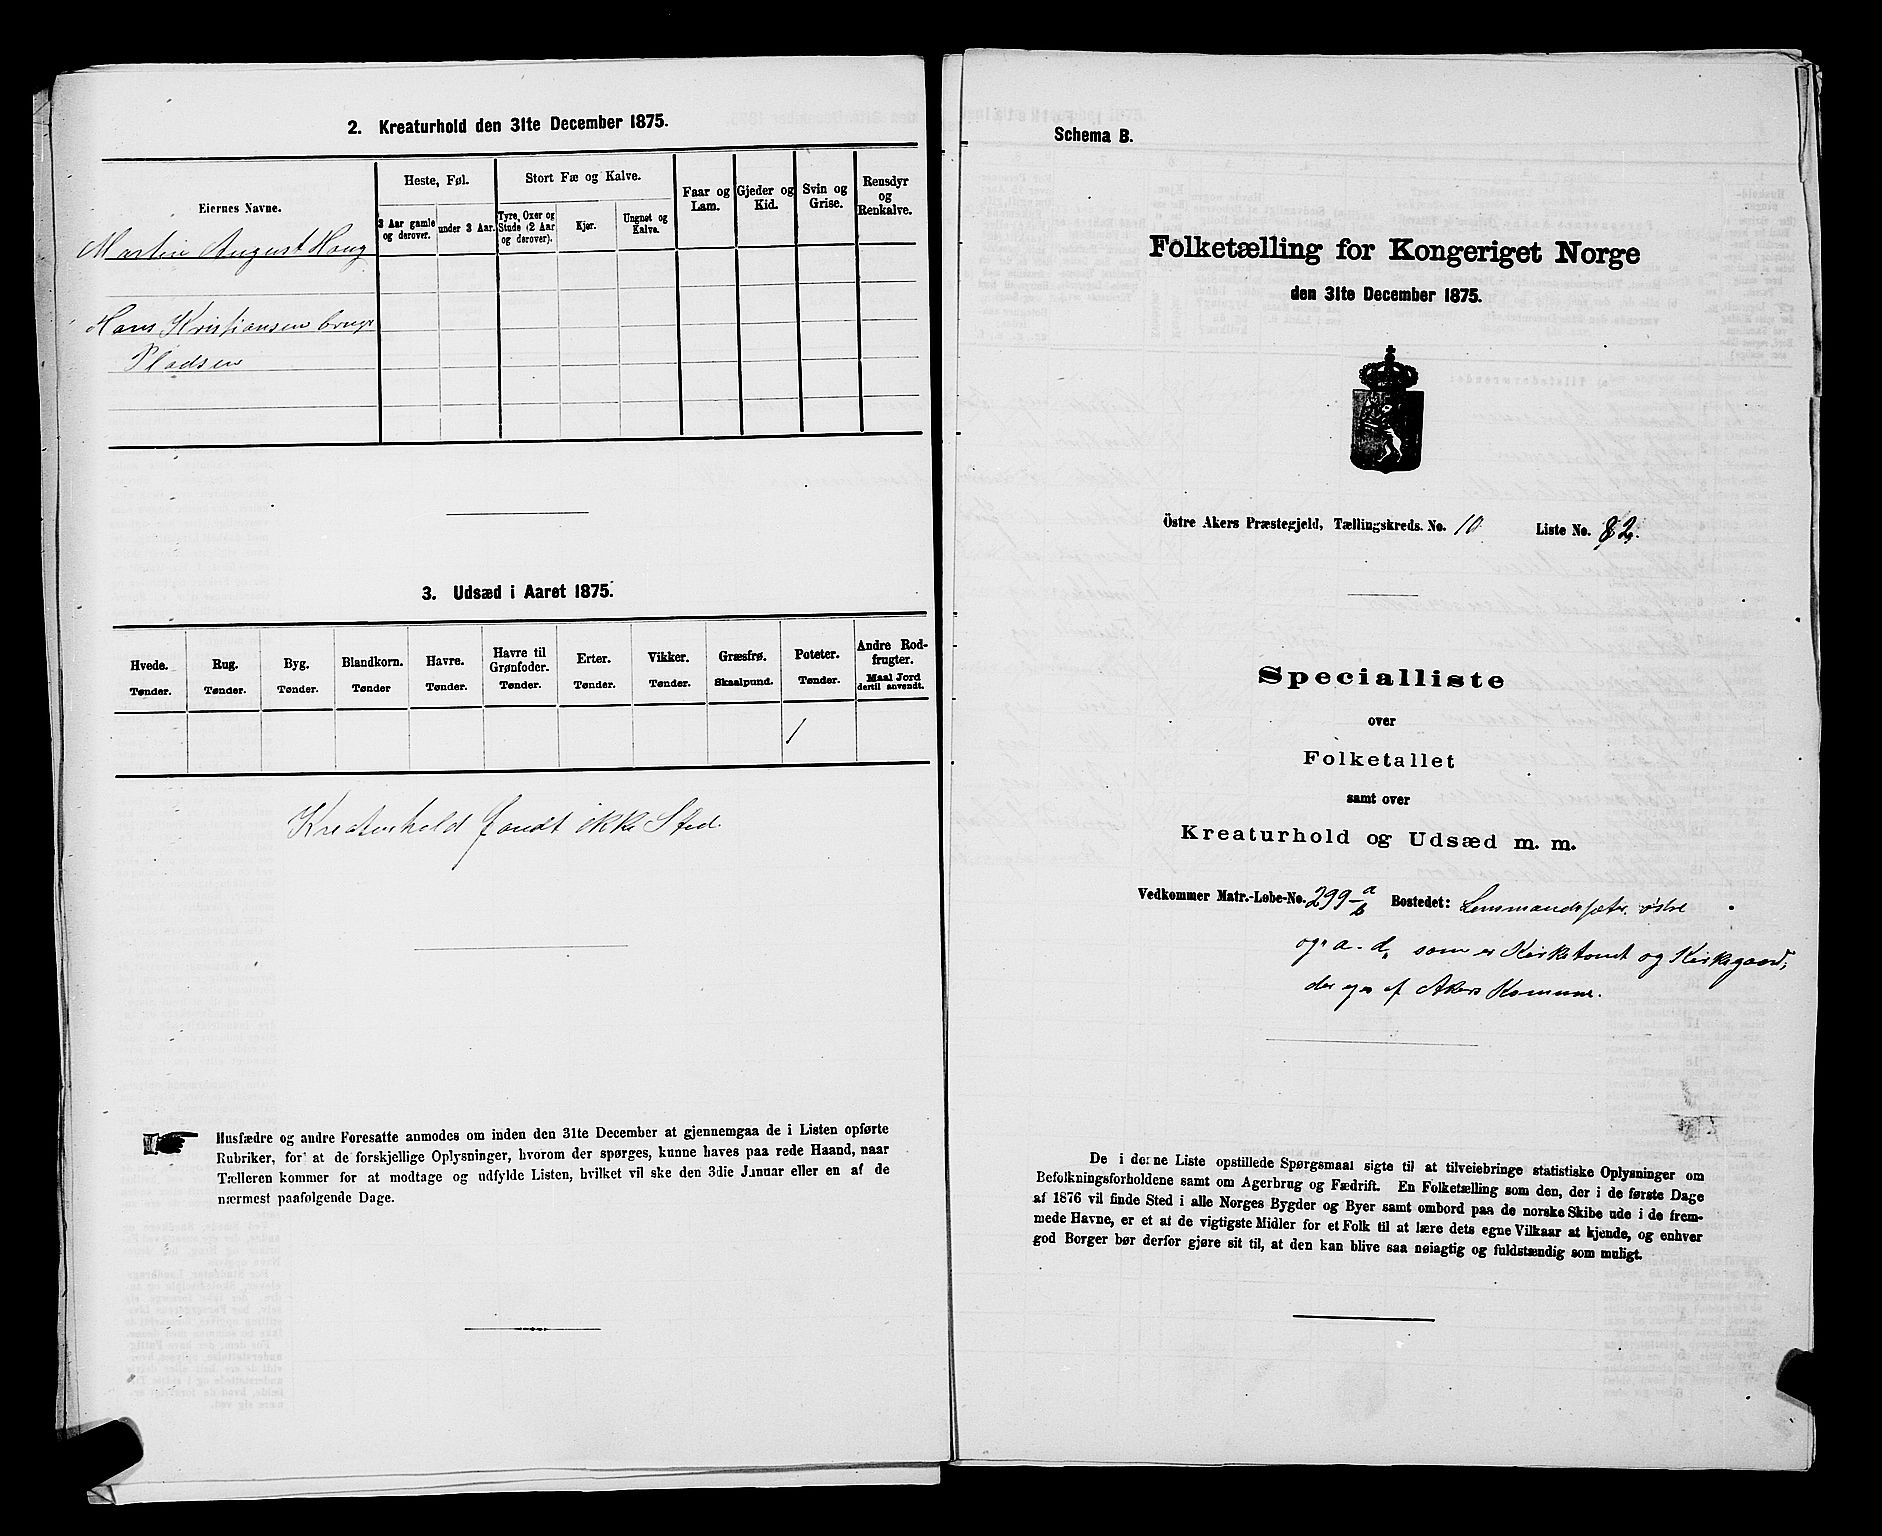 2. Kreaturhold den 31te December 1875.
Eiernes Navne.
Heste, Føl.
Stort Fæ og Kalve.
Faar og Lam.
Gjeder og Kid.
Svin og Grise.
Rensdyr og Renkalve.
3 Aar gamle og derover.
under 3 Aar.
Tyre, Oxer og Stude (2 Aar og derover).
Kjør.
Ungnøt og Kalve.
Martin August Haug
Hans Kristiansen bruger
Pladsen
3. Udsæd i Aaret 1875.
Hvede. Tønder.
Rug. Tønder.
Byg. Tønder.
Blandkorn. Tønder
Havre. Tønder.
Havre til Grønfoder. Tønder.
Erter. Tønder.
Vikker. Tønder.
Græsfrø. Skaalpund.
Poteter. Tønder.
Andre Rodfrugter. Maal Jord dertil anvendt.
1
Kreaturhold fandt ikke Sted.
Husfædre og andre Foresatte anmodes om inden den 31te December at gjennemgaa de i Listen opførte
Rubriker, for at de forskjellige Oplysninger, hvorom der spørges, kunne haves paa rede Haand, naar
Tælleren kommer for at modtage og udfylde Listen, hvilket vil ske den 3die Januar eller en af de
nærmest paafølgende Dage.
Schema B.
Folketælling for Kongeriget Norge
den 31te December 1875.
Östre Akers Præstegjeld, Tællingskreds. No. 10 Liste No. 82.
Specialliste
over
Folketallet
samt over
Kreaturhold og Udsæd m. m.
Vedkommer Matr.-Løbe-No. 299 a b Bostedet: Lensmandssæter østre
og a-d, som er Kirketomt og Kirkegaard,
der eges af Akers Kommune.
De i denne Liste opstillede Spørgsmaal sigte til at tilveiebringe statistiske Oplysninger om
Befolkningsforholdene samt om Agerbrug og Fædrift. En Folketælling som den, der i de første Dage
af 1876 vil finde Sted i alle Norges Bygder og Byer samt ombord paa de norske Skibe ude i de frem-
mede Havne, er et af de vigtigste Midler for et Folk til at lære dets egne Vilkaar at kjende, og enhver
god Borger bør derfor gjøre sit til, at den kan blive saa nøiagtig og fuldstændig som muligt.